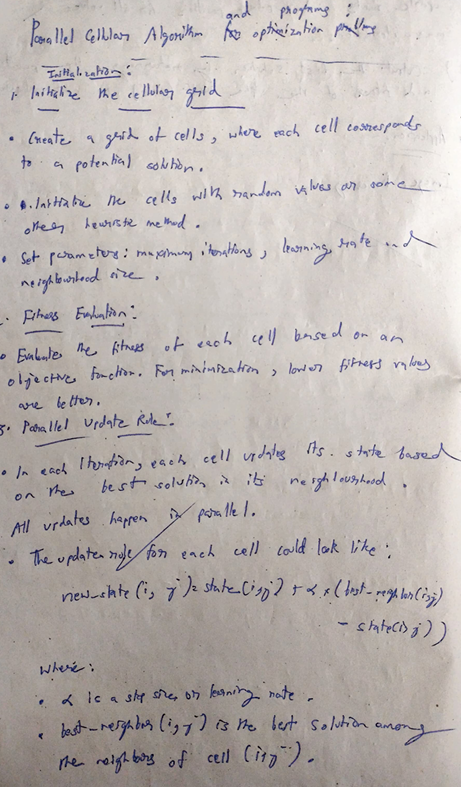 and programs :
Parallel Cellular Algorithm for optimization problems
Initialization :
1. Initialize the cellular grid
• Create a grid of cells, where each cell corresponds
to a potential solution.
• Initialize the cells with random values or some
other heuristic method.
• Set parameters: maximum iterations, learning rate and
neighbourhood size.
Fitness Evaluation:
• Evaluate the fitness of each cell based on an
objective function. For minimization, lower fitness values
are better.
3. Parallel Update Rule:
• In each Iteration, each cell updates its state based
on the best solution in its neighbourhood.
All updates happen in parallel.
• The update rule for each cell could look like:
new-state(i, j) = state(i,j) + α × (best-neighbor(i,j)
- state(i,j))
Where:
• α is a step size or learning rate.
• best-neighbor(i,j) is the best solution among
the neighbors of cell (i,j).